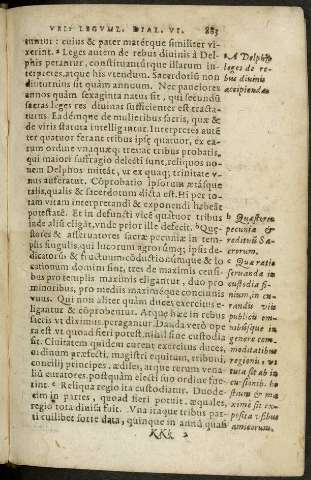 VREI LEGVML. DIAL. VI. 883
tuntur: cuius & pater matérque similiter vi-
xerint. a Leges autem de rebus diuinis à Del-
phis petantur, constituantúrque illarum in-
terpretes, atque his vtendum. Sacerdotiũ non
diuturnius sit quàm annuum. Nec pauciores
annos quàm sexaginta natus sit, qui secundũ
sacras leges res diuinas sufficienter est tracta-
turus. Eadémque de mulieribus sacris, quæ &
de viris statuta intelliguntur. Interpretes autẽ
ter quatuor ferant tribus ipsę quatuor, ex ea-
rum ordine vnaquæq; tresac tribus probatis,
qui maiori suffragio delecti sunt, reliquos no-
uem Delphos mittãt, vt ex quaq; trinitate v-
nus auferatur. Cõprobatio ipsorum ætásque
talis, qualis & sacerdotum dicta est. Hi per to-
tam vitam interpretandi & exponendi habeãt
potestatẽ. Et in defuncti vicẽ quatuor tribus
inde aliũ eligãt, vnde prior ille defecit. b Quę-
stores & æstuatores sacræ pecuniæ in tem-
plis singulis, qui lucorum agrorúmq; ipsis de-
dicatorũ & fructuum cõductionúmque & lo-
cationum domini sint, tres de maximis censi-
bus pro templis maximis eligantur, duo pro
minoribus, pro mediis maximéque concinnis
vnus. Qui non aliter quàm duces, exercitus e-
ligantur & cõprobentur. Atque hæc in rebus
sacris vt diximus peragantur. Danda verò ope
ra est vt quoad fieri potest, nihil sine custodia
sit. Ciuitatem quidem curent exercitus duces,
ordinum præfecti, magistri equitum, tribuni,
concilij principes. ædiles, atque rerum vena-
liũ curatores, postquàm electi suo ordine fue-
rint. c Reliqua regio ita custodiatur. Duode-
cim in partes, quoad fieri potuit, æquales,
regio tota diuisa fuit. Vna itaque tribus par-
ti cuilibet sorte data, quinque in annũ quasi
KKk 2
a A Delphis
leges de re-
bus diuinis
accipiendæ
b Quæstores
pecuniæ &
redituũ Sa-
crorum.
c Qua ratio
seruanda in
custodia fi-
nium, in cu-
randis viis
publicis om-
nibúsque in
genere com-
moditatibus
regionis: vt
tuta sit ab in
cursionib. ho
stium & ma
ximè sit ex-
posita vsibus
amicorum.